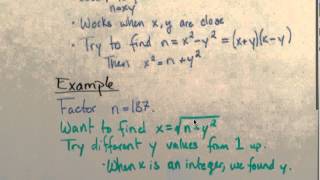 n=xy
• Works when x, y are close
• Try to find n = x² - y² = (x+y)(x-y)
Then x² = n + y²
Example
Factor n = 187.
Want to find x = √n + y²
Try different y values from 1 up.
• When x is an integer, we found y.